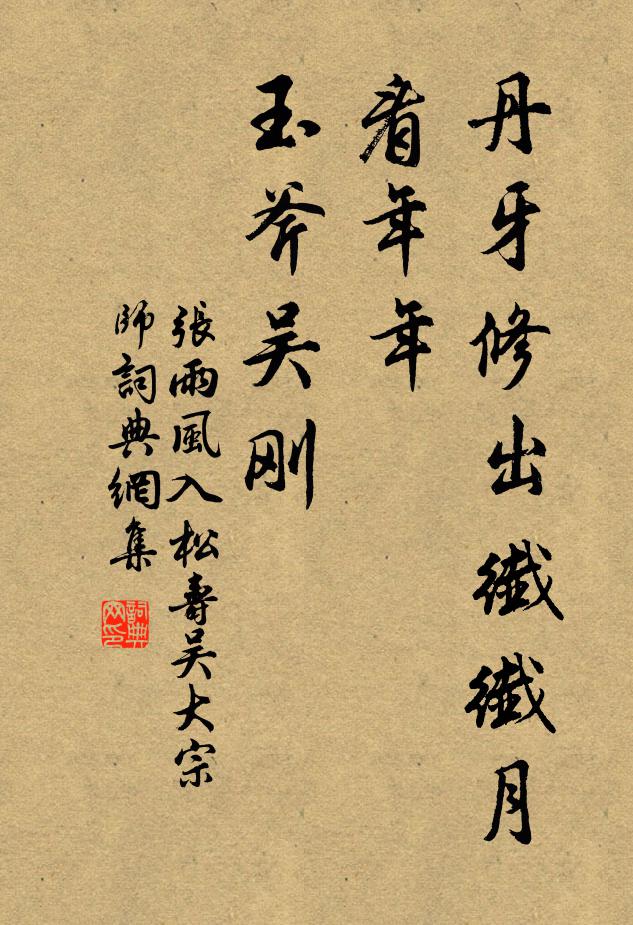 丹牙修出纖纖月
看年年年
玉斧吴刚
張雨風入松壽吴大宗
師詞典網集
詞典
网印